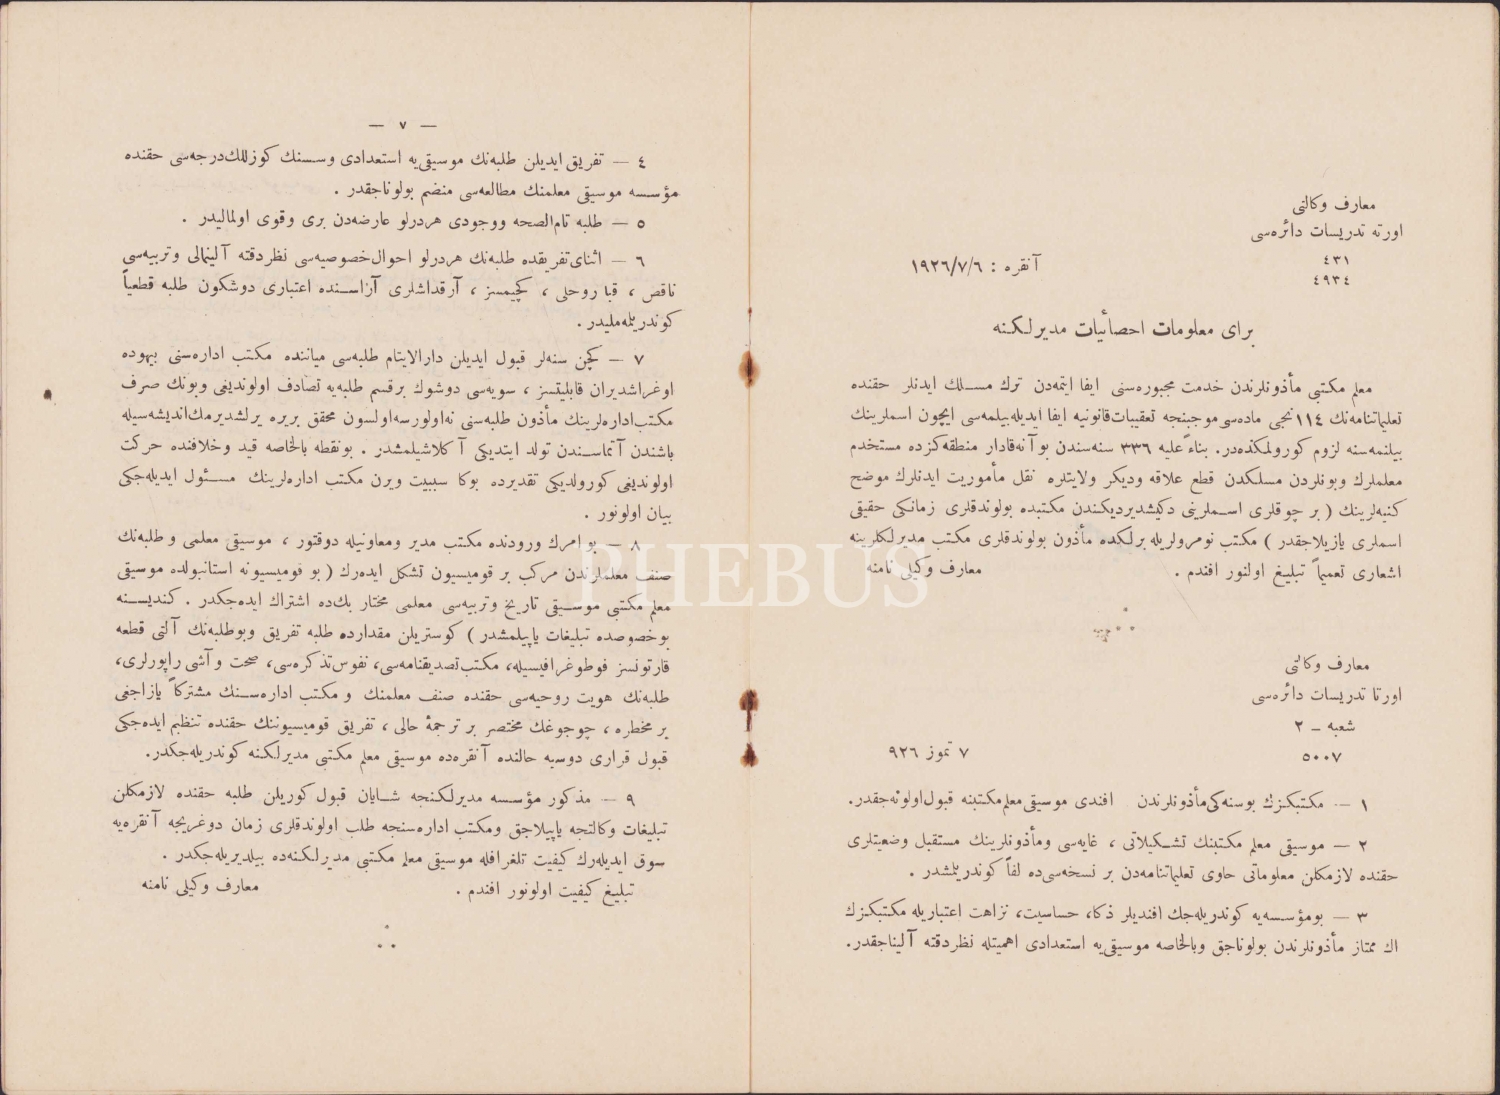 معارف وكالتی
اورته تدریسات دائره‌سی
٤٣١
٤٩٣٤
آنقره : ١٩٢٦/٧/٦
برای معلومات احصائیات مدیرلكنه
معلم مكتبی مأذونلرندن خدمت مجبوره‌سنی ایفا ایتمه‌دن ترك مسلك ایدنلر حقنده
تعلیماتنامه‌نك ١١٤ نجی ماده‌سی موجبنجه تعقیبات قانونیه ایفا ایدیله‌بیلمه‌سی ایچون اسملرینك
بیلنمه‌سنه لزوم كورولمكده‌در. بناءً علیه ٣٣٦ سنه‌سندن بو آنه‌قادار منطقه‌كزده مستخدم
معلملرك وبونلردن مسلكدن قطع علاقه ودیكر ولایتلره نقل مأموریت ایدنلرك موضح
كنیه‌لرینك ( بر چوقلری اسملرینی دكیشدیردیكندن مكتبده بولوندقلری زمانكی حقیقی
اسملری یازیلاجقدر ) مكتب نومرولریله برلكده مأذون بولوندقلری مكتب مدیرلكلرینه
اشعاری تعمیماً تبلیغ اولنور افندم .
معارف وكیلی نامنه
معارف وكالتی
اورتا تدریسات دائره‌سی
شعبه ـ ٢
٥٠٠٧
٧ تموز ٩٢٦
١ — مكتبكزك بوسنه‌كی مأذونلرندن افندی موسیقی معلم مكتبنه قبول اولونه‌جقدر.
٢ — موسیقی معلم مكتبنك تشكیلاتی ، غایه‌سی ومأذونلرینك مستقبل وضعیتلری
حقنده لازمكلن معلوماتی حاوی تعلیماتنامه‌دن بر نسخه‌سی‌ده لفاً كوندریلمشدر .
٣ — بومؤسسه‌یه كوندریله‌جك افندیلر ذكا، حساسیت، نزاهت اعتباریله مكتبكزك
اك ممتاز مأذونلرندن بولوناجق وبالخاصه موسیقی‌یه استعدادی اهمیتله نظردقته آلیناجقدر.
— ٧ —
٤ — تفریق ایدیلن طلبه‌نك موسیقی‌یه استعدادی وسسنك كوزللك‌درجه‌سی حقنده
مؤسسه موسیقی معلمنك مطالعه‌سی منضم بولوناجقدر .
٥ — طلبه تام‌الصحه ووجودی هردرلو عارضه‌دن بری وقوی اولمالیدر .
٦ — اثنای تفریقده طلبه‌نك هردرلو احوال‌خصوصیه‌سی نظردقته آلینمالی وتربیه‌سی
ناقص ، قبا روحلی ، كچیمسز ، آرقداشلری آراسنده اعتباری دوشكون طلبه قطعیاً
كوندریلمه‌ملیدر .
٧ — كچن سنه‌لر قبول ایدیلن دارالایتام طلبه‌سی میاننده مكتب اداره‌سنی بیهوده
اوغراشدیران قابلیتسز ، سویه‌سی دوشوك برقسم طلبه‌یه تصادف اولوندیغی وبونك صرف
مكتب‌اداره‌لرینك مأذون طلبه‌سنی نه‌اولورسه‌اولسون محقق بریره یرلشدیرمك‌اندیشه‌سیله
باشندن آتماسندن تولد ایتدیكی آكلاشیلمشدر . بونقطه بالخاصه قید وخلافنده حركت
اولوندیغی كورولدیكی تقدیرده بوكا سببیت ویرن مكتب اداره‌لرینك مسئول ایدیله‌جكی
بیان اولونور .
٨ — بو امرك ورودنده مكتب مدیر ومعاونیله دوقتور ، موسیقی معلمی و طلبه‌نك
صنف معلملرندن مركب بر قومیسیون تشكل ایده‌رك ( بو قومیسیونه استانبولده موسیقی
معلم مكتبی موسیقی تاریخ وتربیه‌سی معلمی مختار بك‌ده اشتراك ایده‌جكدر . كندیسنه
بوخصوصده تبلیغات یاپیلمشدر ) كوستریلن مقدارده طلبه تفریق وبوطلبه‌نك آلتی قطعه
قارتونسز فوطوغرافیسیله، مكتب‌تصدیقنامه‌سی، نفوس‌تذكره‌سی، صحت و آشی راپورلری،
طلبه‌نك هویت روحیه‌سی حقنده صنف معلمنك و مكتب اداره‌سنك مشتركاً یازاجغی
بر مخطره ، چوجوغك مختصر بر ترجمهٔ حالی ، تفریق قومیسیوننك حقنده تنظیم ایده‌جكی
قبول قراری دوسیه حالنده آنقره‌ده موسیقی معلم مكتبی مدیرلكنه كوندریله‌جكدر.
٩ — مذكور مؤسسه مدیرلكنجه شایان قبول كوریلن طلبه حقنده لازمكلن
تبلیغات وكالتجه یاپیلاجق ومكتب اداره‌سنجه طلب اولوندقلری زمان دوغریجه آنقره‌یه
سوق ایدیله‌رك كیفیت تلغرافله موسیقی معلم مكتبی مدیرلكنه‌ده بیلدیریله‌جكدر .
تبلیغ كیفیت اولونور افندم .
معارف وكیلی نامنه
PHEBUS